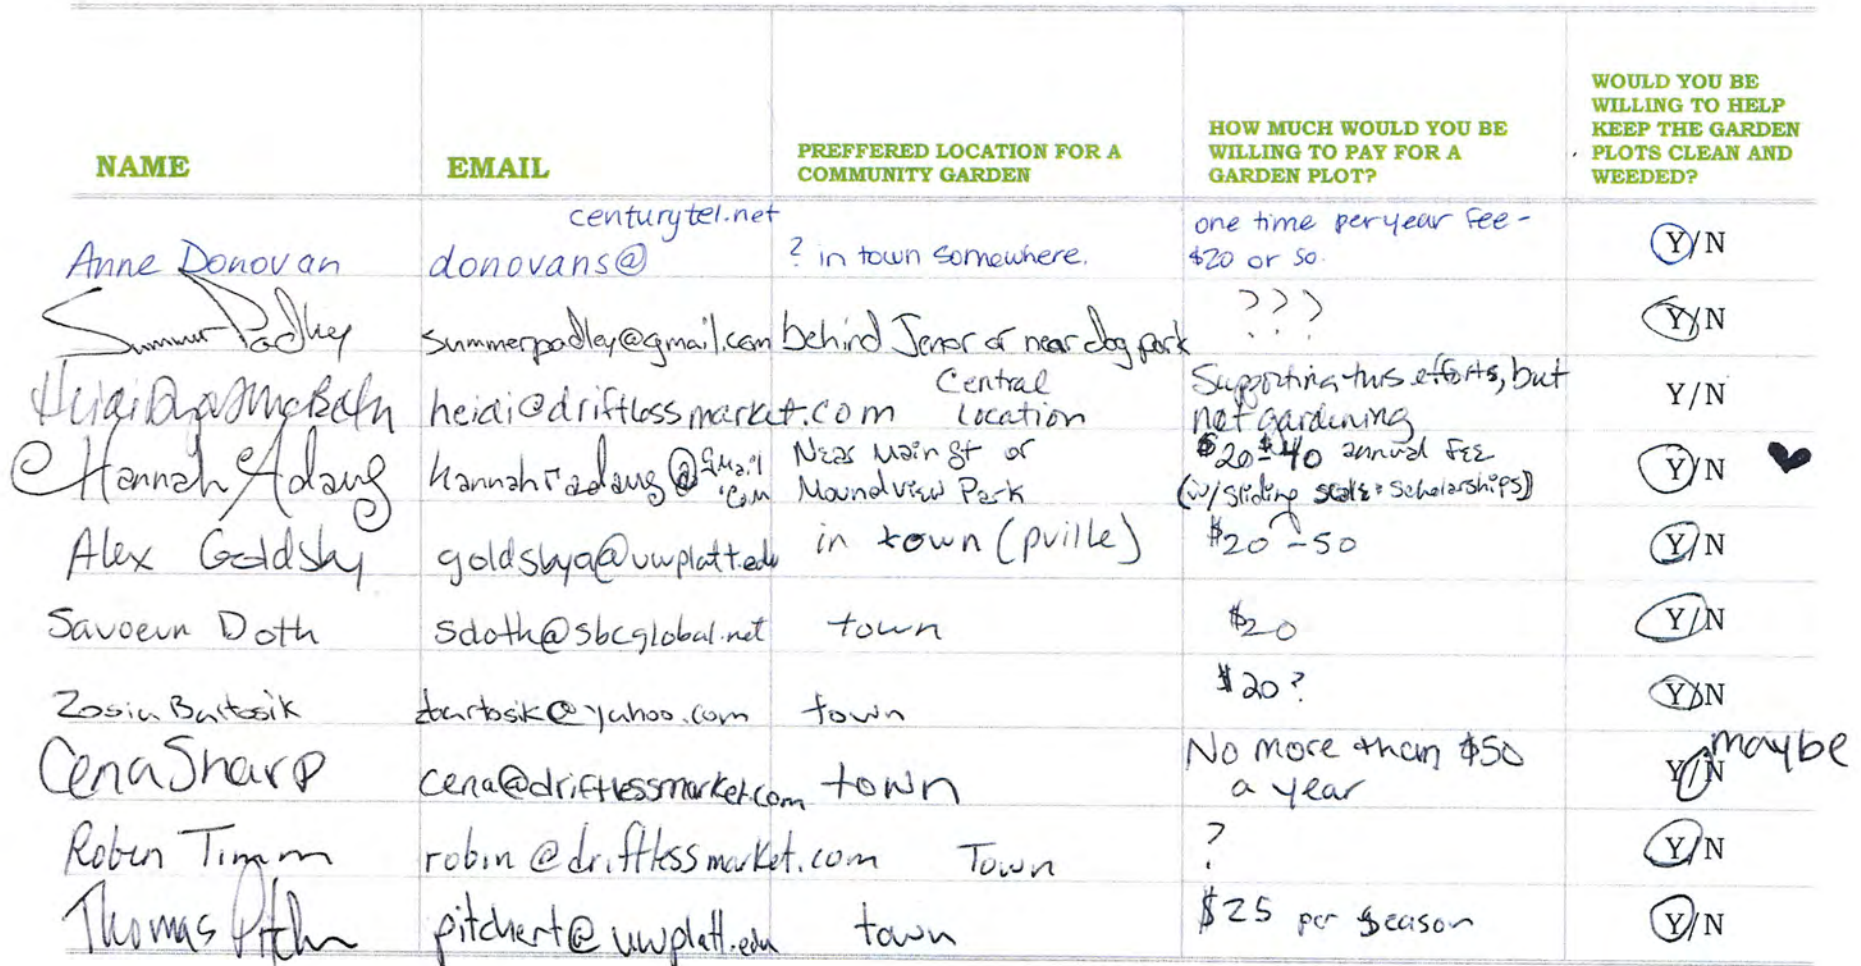 NAME
EMAIL
PREFFERED LOCATION FOR A
COMMUNITY GARDEN
HOW MUCH WOULD YOU BE
WILLING TO PAY FOR A
GARDEN PLOT?
WOULD YOU BE
WILLING TO HELP
KEEP THE GARDEN
PLOTS CLEAN AND
WEEDED?
Anne Donovan
centurytel.net
donovans@
? in town somewhere.
one time per year fee -
$20 or so.
Y/N
Summer Padley
summerpadley@gmail.com
behind Jenor or near dog park
???
Y/N
Heidi
heidi@driftlessmarket.com
Central
Location
Supporting this efforts, but
not gardening
Y/N
Hannah Adang
hannahradang@gmail
.com
Near Main St or
Moundview Park
$20-$40 annual fee
(w/ sliding scale + scholarships)
Y/N ♥
Alex Goldsby
goldsbya@uwplatt.edu
in town (pville)
$20-50
Y/N
Savoeun Doth
sdoth@sbcglobal.net
town
$20
Y/N
Zosia Bartosik
zbartosik@yahoo.com
town
$20?
Y/N
Cena Sharp
cena@driftlessmarket.com
town
No more than $50
a year
Y/N maybe
Robin Timm
robin@driftlessmarket.com
Town
?
Y/N
Thomas
pitchert@uwplatt.edu
town
$25 per season
Y/N